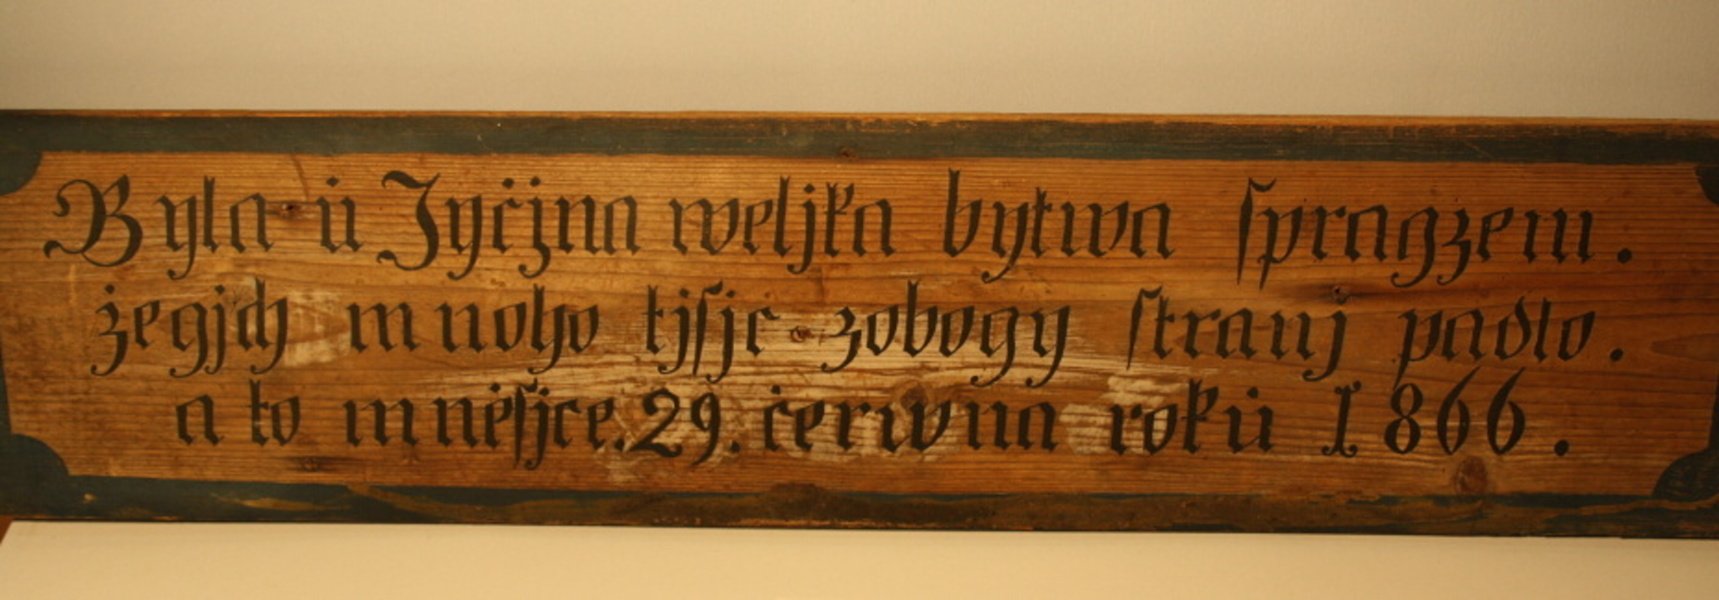 Byla ů Jyčżna weljka bytwa ſpragzem.
żegjch mnoho tjſjc zobogy ſtranj padlo.
a to mněſjce. 29. ċerwna roků 1866.